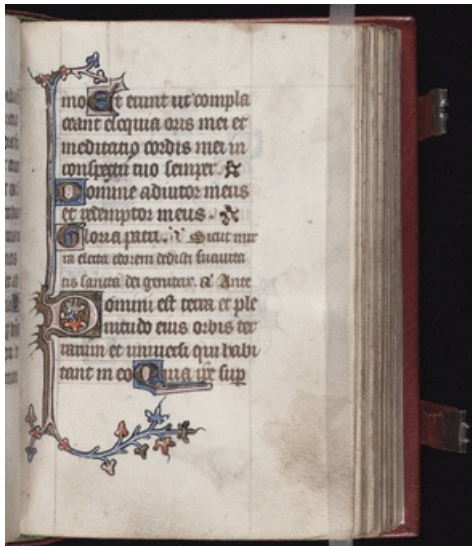 mo Et erunt ut compla
ceant eloquia oris mei et
meditatio cordis mei in
conspectu tuo semper.
Domine adiutor meus
et redemptor meus.
Gloria patri. Sicut mir
ra electa odorem dedisti suavita
tis sancta dei genitrix. a Ante
Domini est terra et ple
nitudo eius orbis ter
rarum et universi qui habi
tant in eo Quia ipe sup